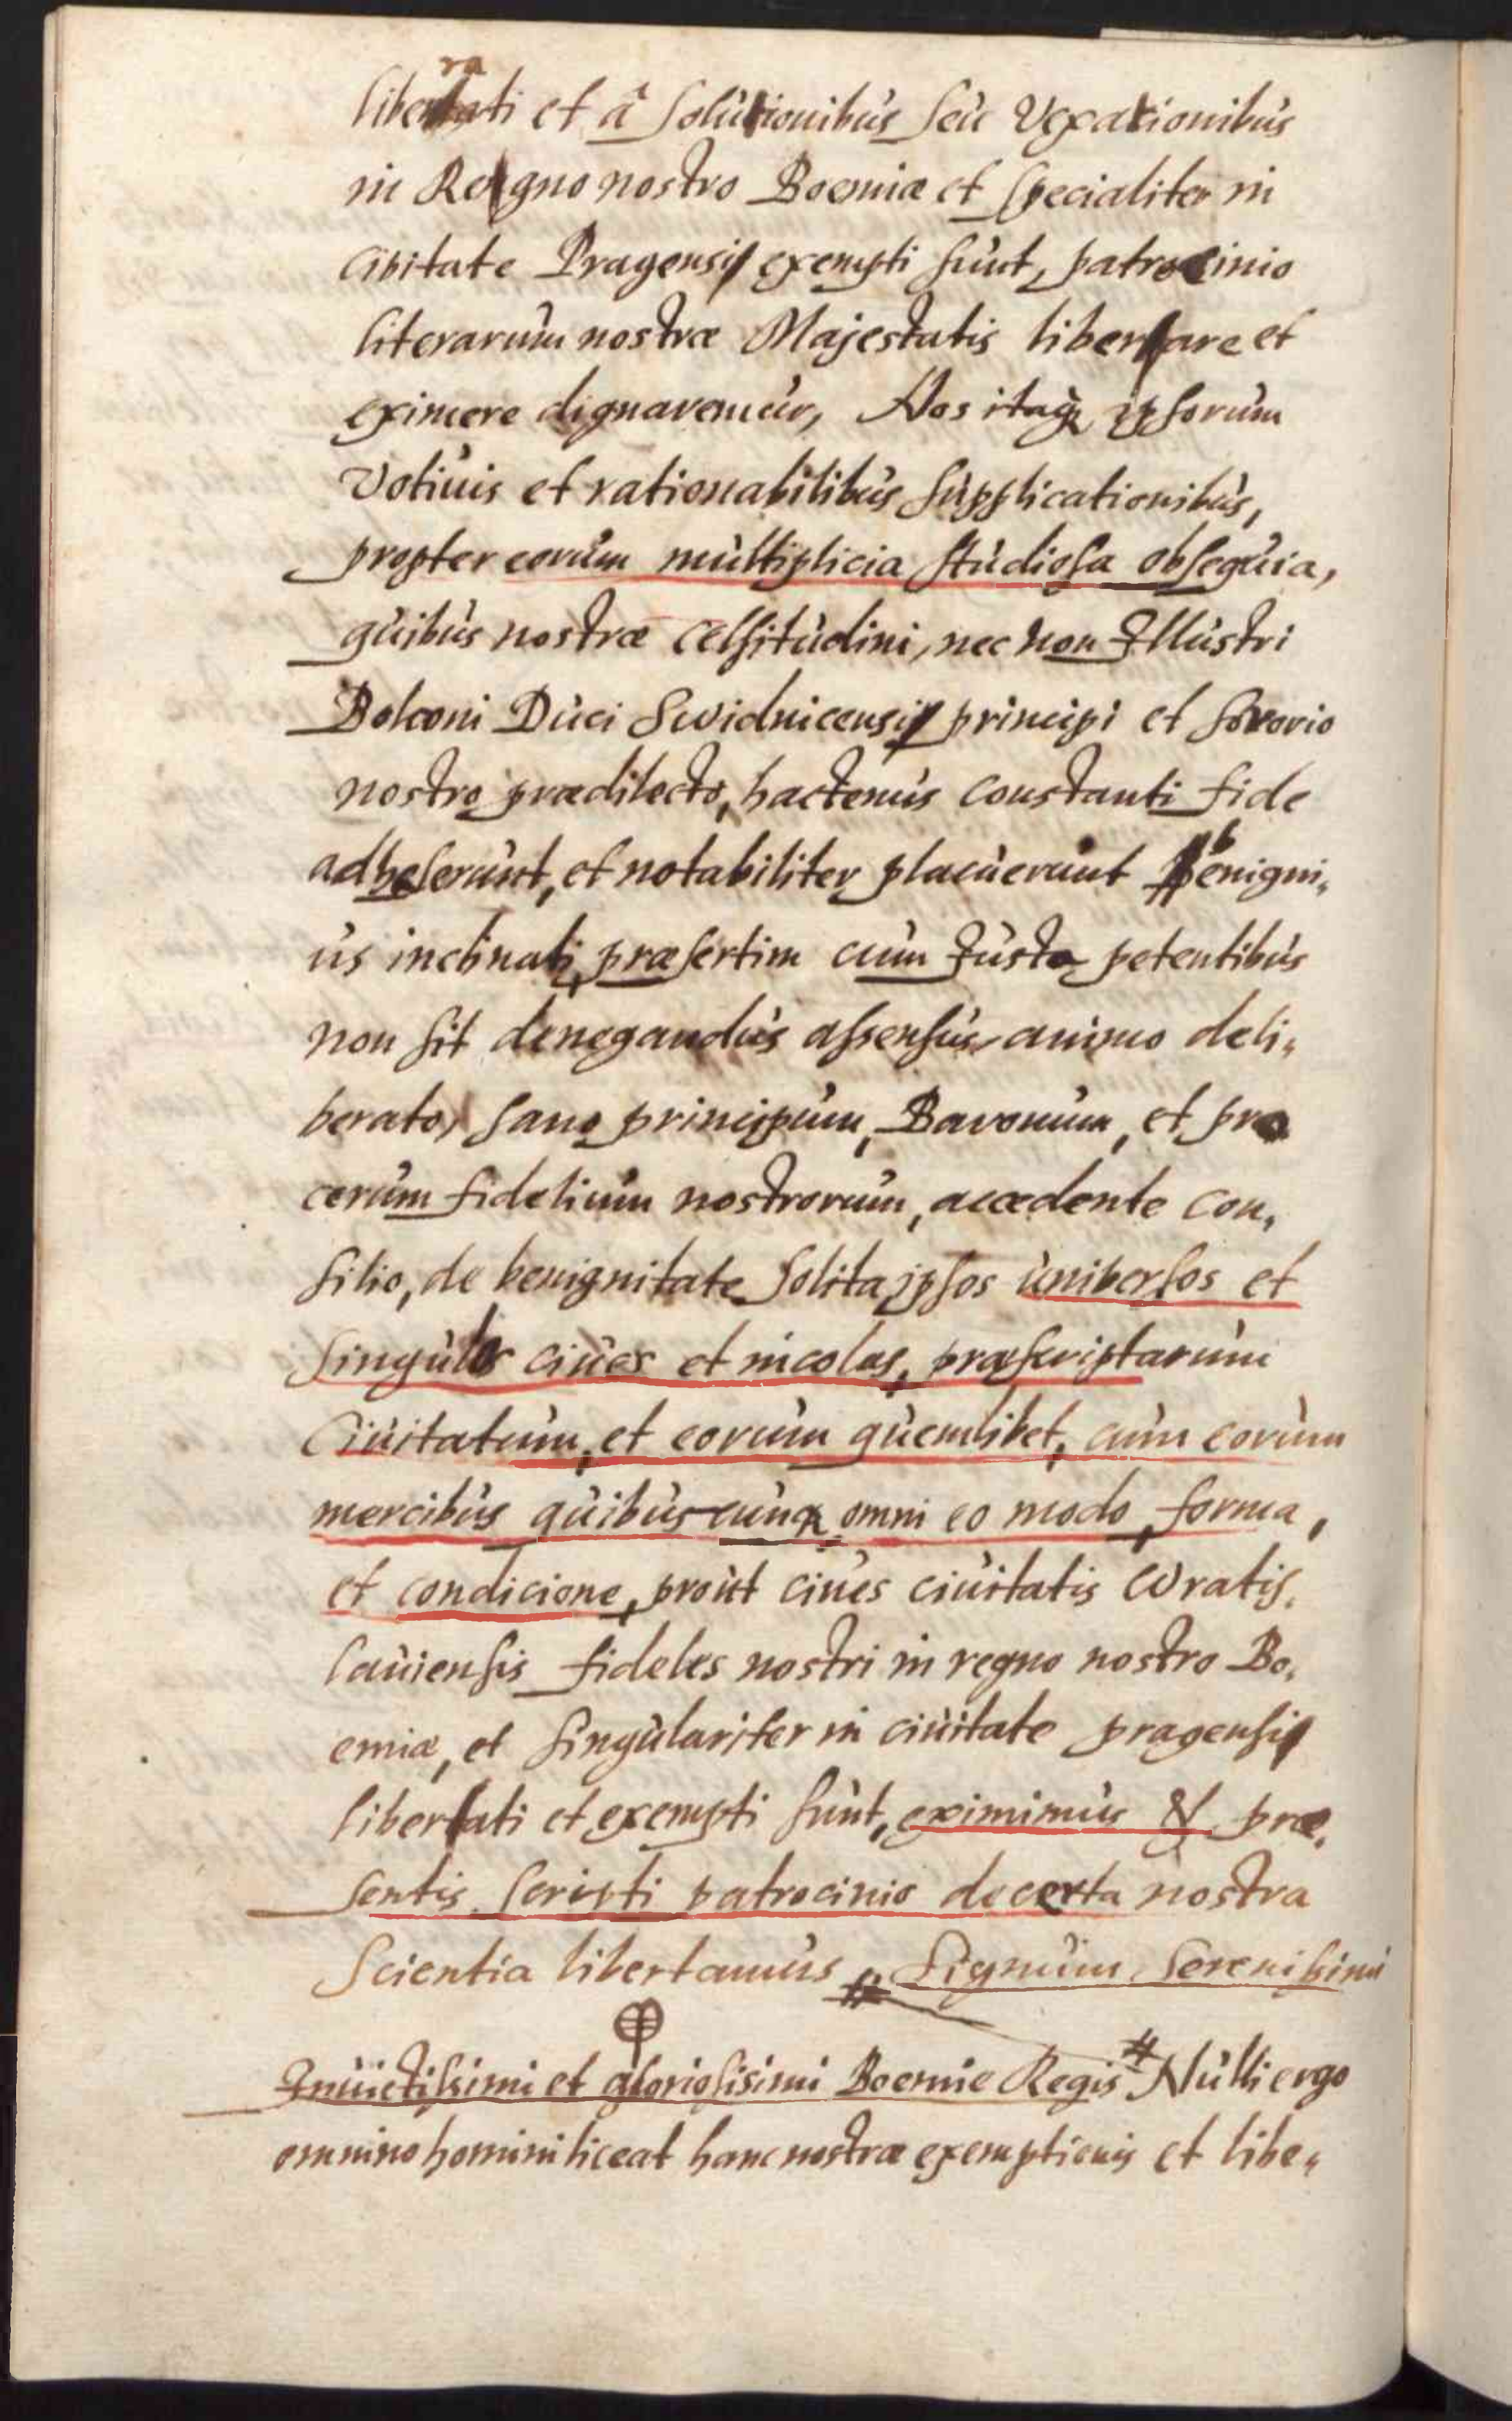 liberati et â solutionibus seu Vexationibus
in Regno nostro Boemiæ et specialiter in
Civitate Pragensi exempti sunt, patrocinio
literarum nostræ Majestatis libertare et
eximere dignaremur, Nos itaq ipsorum
Votiuis et rationabilibus supplicationibus,
propter eorum multiplicia studiosa obsequia,
quibus nostræ celsitudini, nec non Illustri
Bolconi Duci Swidnicensi principi et sororio
nostro prædilecto, hactenus constanti fide
adheserunt, et notabiliter placuerunt benigni„
us inclinati, præsertim cum Justa petentibus
non sit denegandus assensus, animo deli„
berato, sano principum, Baronum, et pro
cerum fidelium nostrorum, accedente con„
silio, de benignitate solita ipsos universos et
singulos ciues et incolas, præscriptarum
Ciuitatum, et eorum quemlibet, cum eorum
mercibus quibuscunq omni eo modo, forma,
et condicione, prout ciues ciuitatis Wratis„
lauiensis fideles nostri in regno nostro Bo„
emiæ, et singulariter in ciuitate pragensi
libertati et exempti sunt, eximimus & præ„
sentis scripti patrocinio de certa nostra
Scientia libertamus # Signum Serenissimi
Inuictissimi et gloriosissimi Boemie Regis # Nulli ergo
omnino homini liceat hanc nostræ exemptionis et libe„